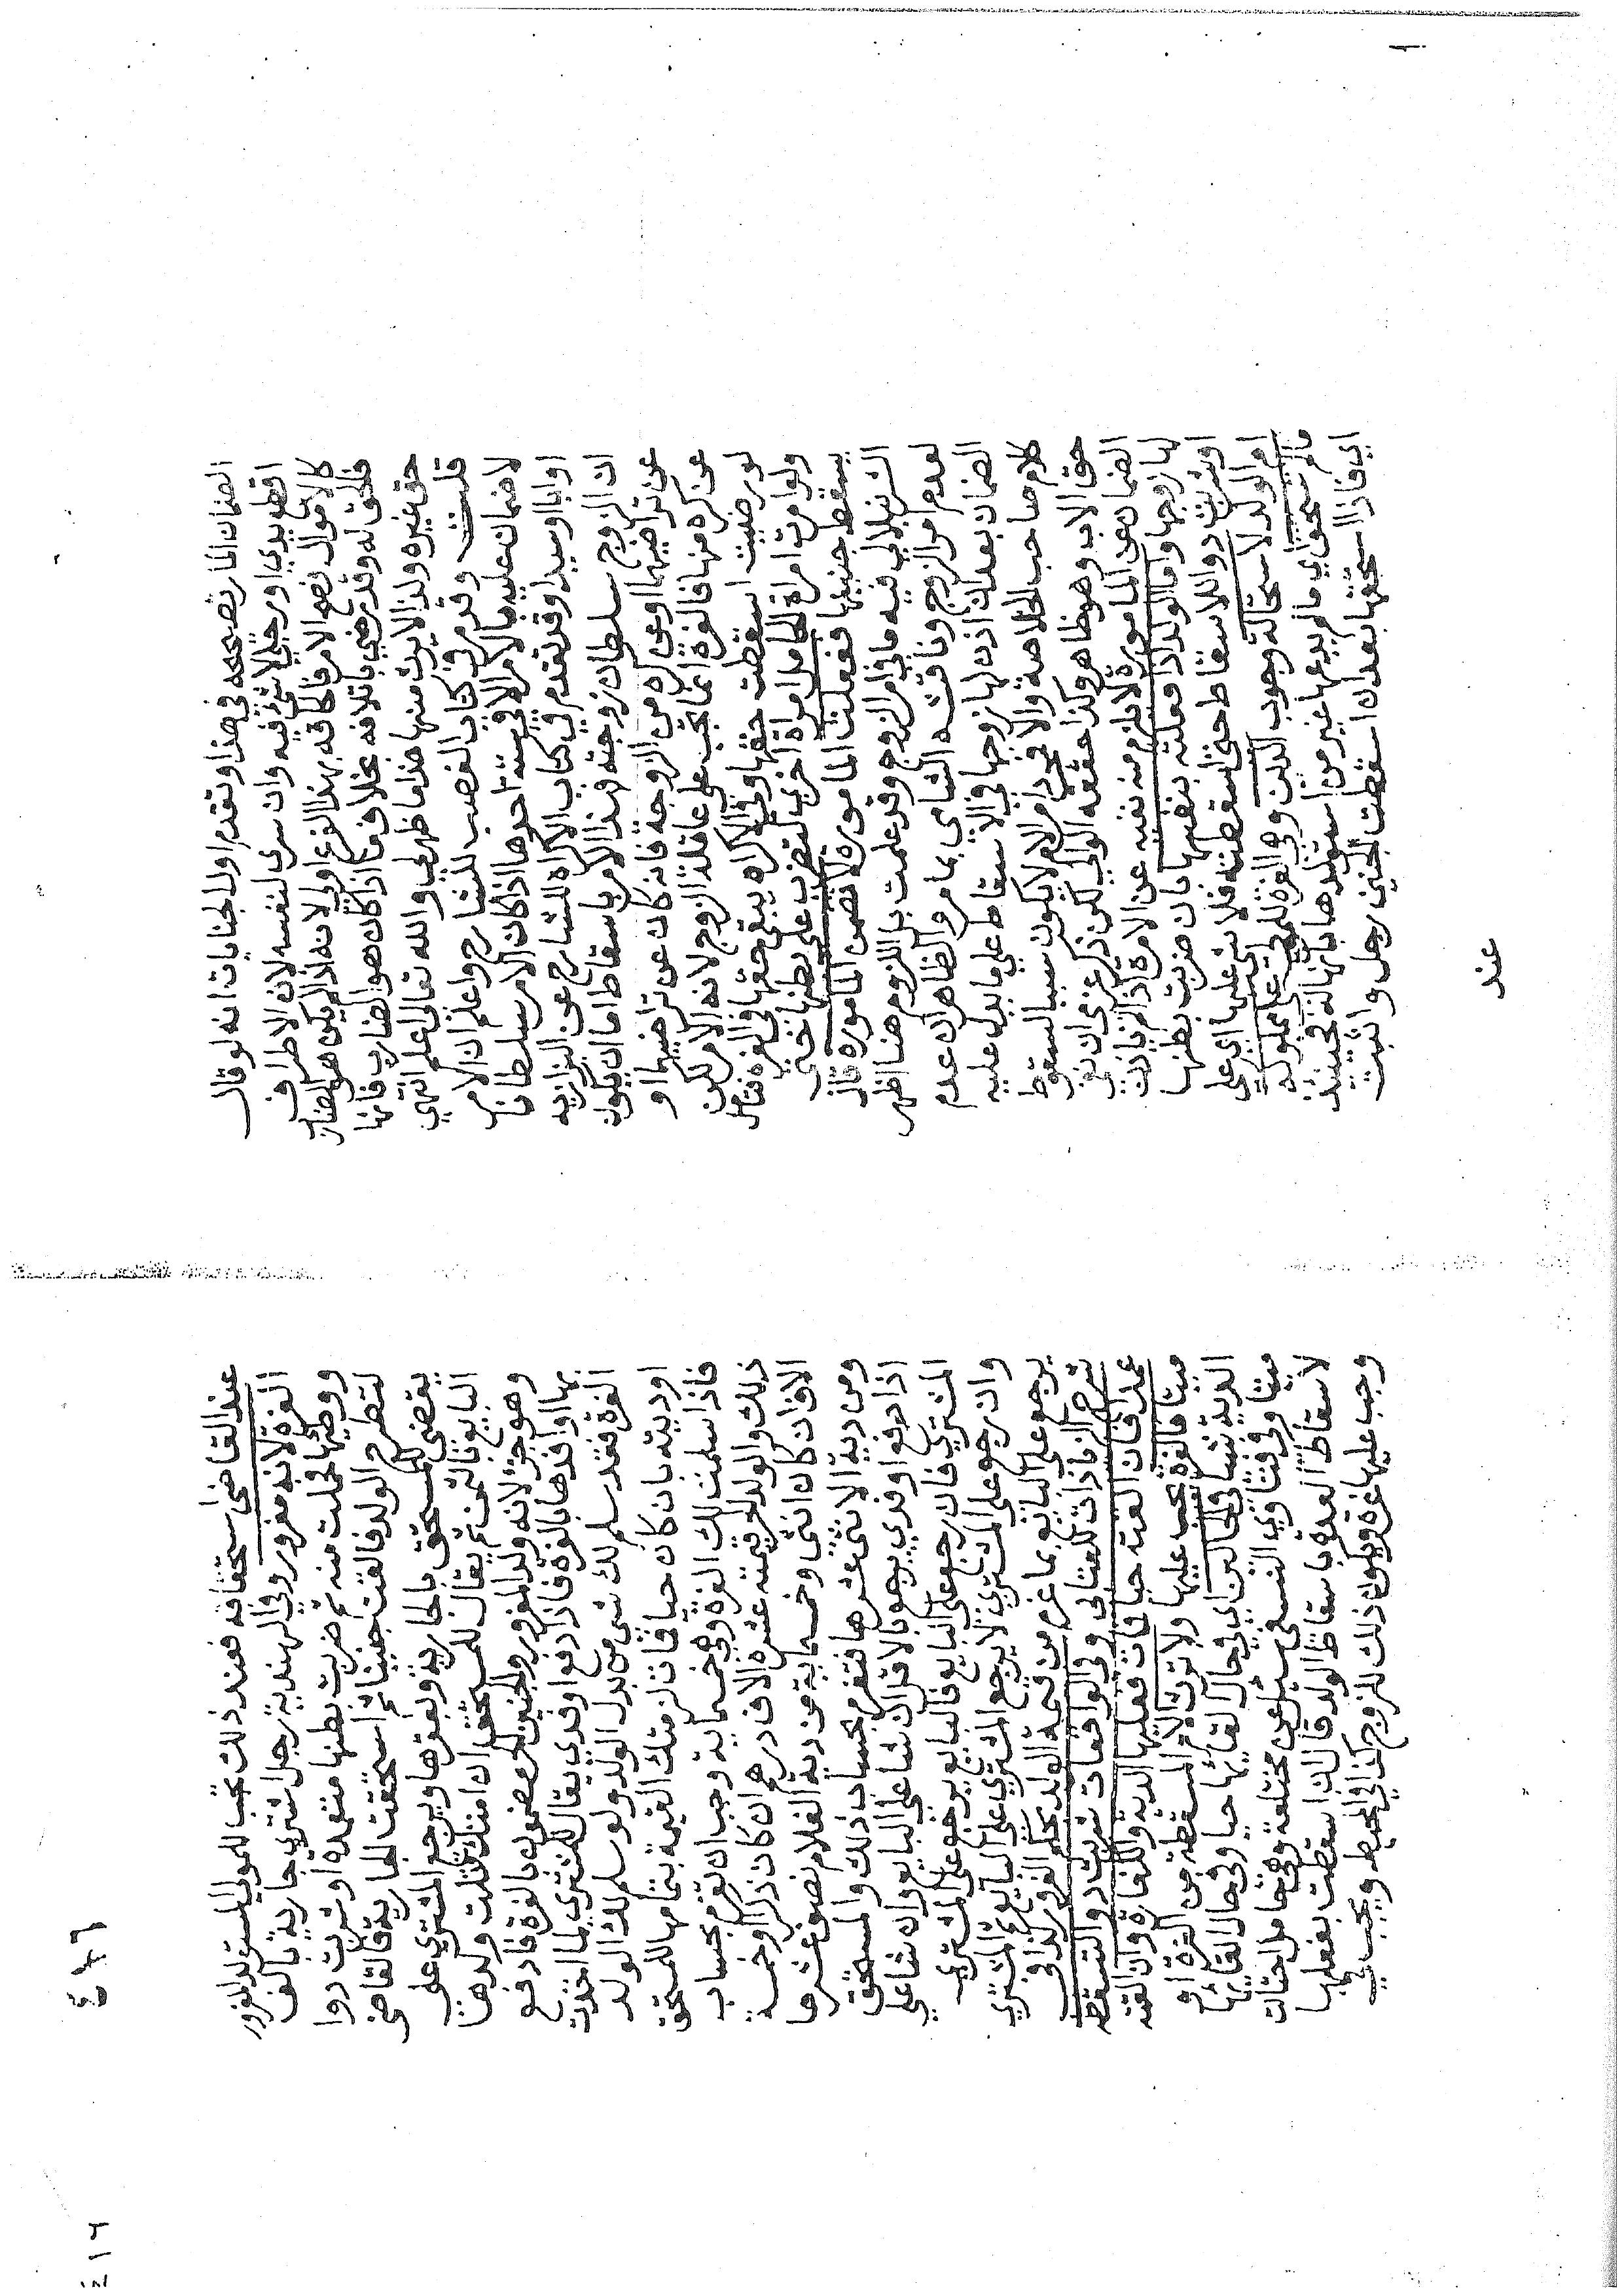 الضمان المار تصحيحه في هذا وتقدم اول الجنايات انه لو قال
اقطع يدي او رجلي لاشي فيه وان سرى لنفسه لان الاطراف
كالاموال فصح الامر فالحاقه بهذا الفرع اولي لانه اذا لم يكن هو الضارب
فالحق له وقد رضي باتلافه بخلاف ما اذا كان هو الضارب فانها
حق غيره ولذا لا يرث منها هذا ما ظهر لي والله تعالى اعلم انتهي
قلت وقد مر في كتاب الغصب للشارح واعلم ان الامر
لا ضمان عليه بالامر الا في ستة احدها اذا كان الامر سلطانا
او ابا او سيدا وقد تقدم في كتاب الاكراه للشارح عن البزازيه
ان الزوج سلطان زوجته فهذا الامر باسقاط اما ان يكون
عن تراضيهما او عن اكراه من الزوجة فان كان عن تراضيهما او
عن كره منها فالغرة انما تجب علي عاقلة الزوج لانه الامر لكن
لو رضيت اسقطت حقها وفي الاكراه يبقي حقها في الغره فتامل
ولو امرت امراة الحامل امراة اخري لتضرب علي بطنها حتي
يسقط جنينها ففعلت المامورة لا تضمن المامورة قال
الشرنبلالي فيه ما في امر الزوج وقد علمت بان اللزوم هنا اظهر
لعدم امر الزوج وناقشه الشامي بما مر والظاهر ان عدم
الضمان بعد ان اذن لها زوجها في الاسقاط علي ما يدل عليه
كلام صاحب الخلاصة والا فمجرد امر الام لا يكون سببا لسقوط
حق الاب وهو ظاهر وكذا حققه الوالي لكن ذكر عزمي ان نفي
الضمان عن المامورة لا يلزم منه نفيه عن الامرة اذا لم ياذن
لها زوجها واما ام الولد اذا فعلته بنفسها بان ضربت بطنها
او شربت دوا للاسقاط حتي اسقطته فلا شي عليها اي علي
ام الولد لاستحالة وجوب الدين وهي الغرة للمولي علي مملوكه
مالم تستحق اي مالم يدعها غير من استولدها بانها له فحينئذ
اي فاذا استحقها بعد ان اسقطت الجنين رجل واثبت
عند
عند القاضي استحقاقه فعند ذلك تجب للمولي المستولد المغرور
الغرة لانه مغرور وفي الهندية رجل اشتري جارية بالف
ووطئها فحملت منه ثم ضربت بطنها متعمدة او شربت دوا
لتطرح الولد فالقت جنينا ثم استحقت الجارية فالقاضي
يقضي للمستحق بالجارية وبعقرها ويرجع المشتري علي
البايع بالثمن ثم يقال للمستحق ان امتك قتلت ولدها
وهو حر لانه ولد المغرور والجنين الحر مضمون بالغرة فادفع
بها او افدها بالغرة فاذا دفع او فدي يقال للمشتري لما اخذت
الغرة فقد سلم لك شي من بدل الولد ولو سلم لك الولد
او ديته بان كان حيا فمات لزمتك القيمة بتمامها للمستحق
فاذا سلمت لك الغرة وهي خمسماية وجب ان تغرم بحساب
ذلك والولد الحر قيمته عشرة الاف درهم ان كان ذكرا وخمسة
الاف ان كان انثي وخمسماية من دية الغلام نصف عشرها
ومن دية الانثي عشرها فتغرم بحساب ذلك والمستحق
اذا دفع او فدي يرجع بالاقل ان شا علي البايع وان شا علي
المشتري فان رجع علي البايع فالبايع يرجع علي المشتري
وان رجع علي المشتري لا يرجع المشتري علي البايع ثم المشتري
يرجع علي البايع بما غرم من قيمة الولد بحكم الغرر كذا في
شرح الزيادات للعتابي وفي الواقعات شربت دوا لتسقطه
عمدا فان القته حيا فمات فعليها الدية والكفارة وان القته
ميتا فالغرة تجب عليها ولا ترث الام المسقطة من الغرة او
الدية شيا في الحالين اي في حال القائها حيا وفي حال القائها
ميتا وفي فتاوي النسفي سئل عن مختلعة وهي حامل احتالت
لاسقاط العدة باسقاط الولد قال ان اسقطت بفعلها
وجب عليها غرة ويكون ذلك للزوج كذا في المحيط ويجب في